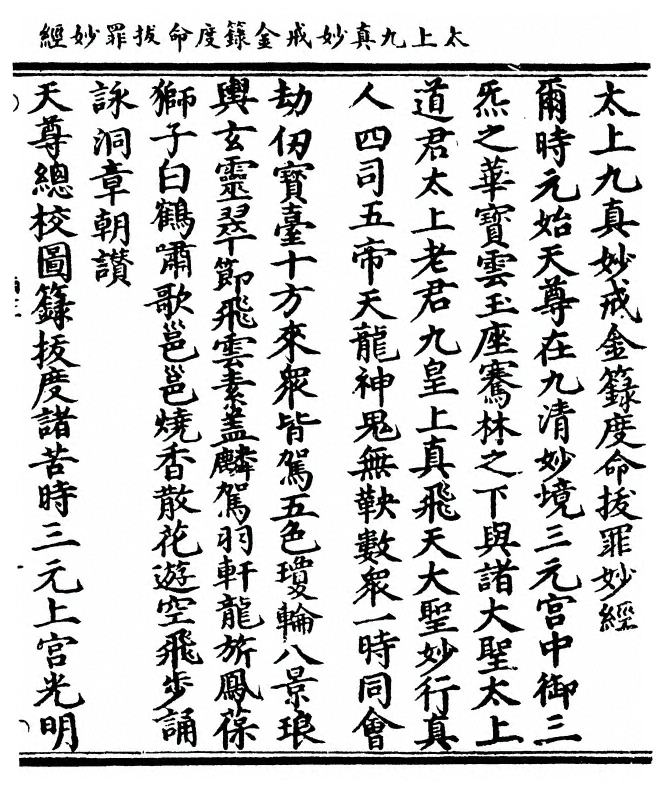 太上九真妙戒金籙度命拔罪妙經
太上九真妙戒金籙度命拔罪妙經
爾時元始天尊在九清妙境三元宮中御三
炁之華寶雲玉座騫林之下與諸大聖太上
道君太上老君九皇上真飛天大聖妙行真
人四司五帝天龍神鬼無鞅數眾一時同會
劫仞寶臺十方來眾皆駕五色瓊輪八景琅
輿玄靈翠節飛雲素蓋麟駕羽軒龍旂鳳葆
獅子白鶴嘯歌邕邕燒香散花遊空飛步誦
詠洞章朝讚
天尊總校圖籙拔度諸苦時三元上宮光明